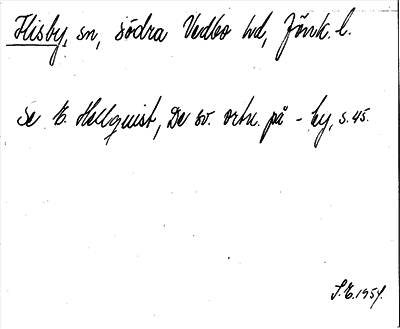 Flisby, sn, Södra Vedbo hd, Jönk. l.
Se E. Hellquist, De sv. ortn. på -by, s. 45.
S.E. 1954.